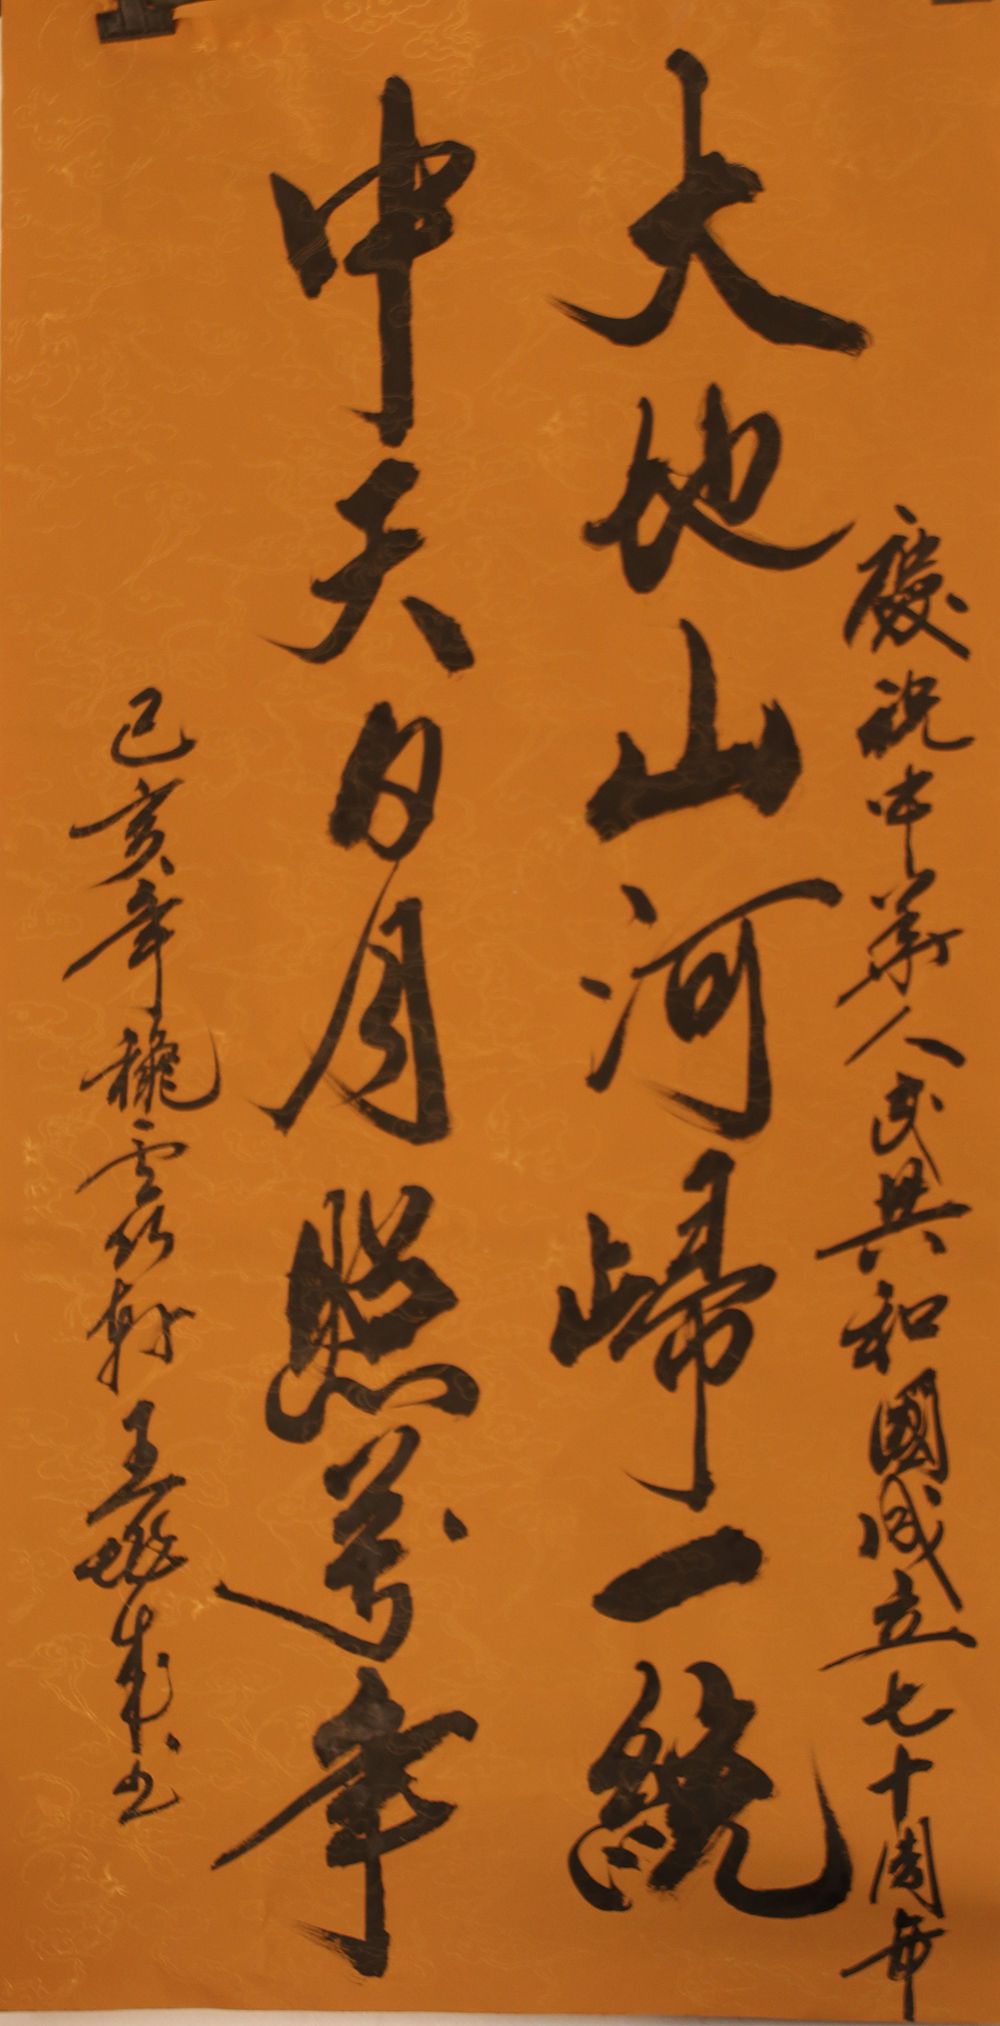 慶祝中華人民共和國成立七十周年
大地山河歸一統
中天日月照萬年
己亥年穗雲竹軒王成書